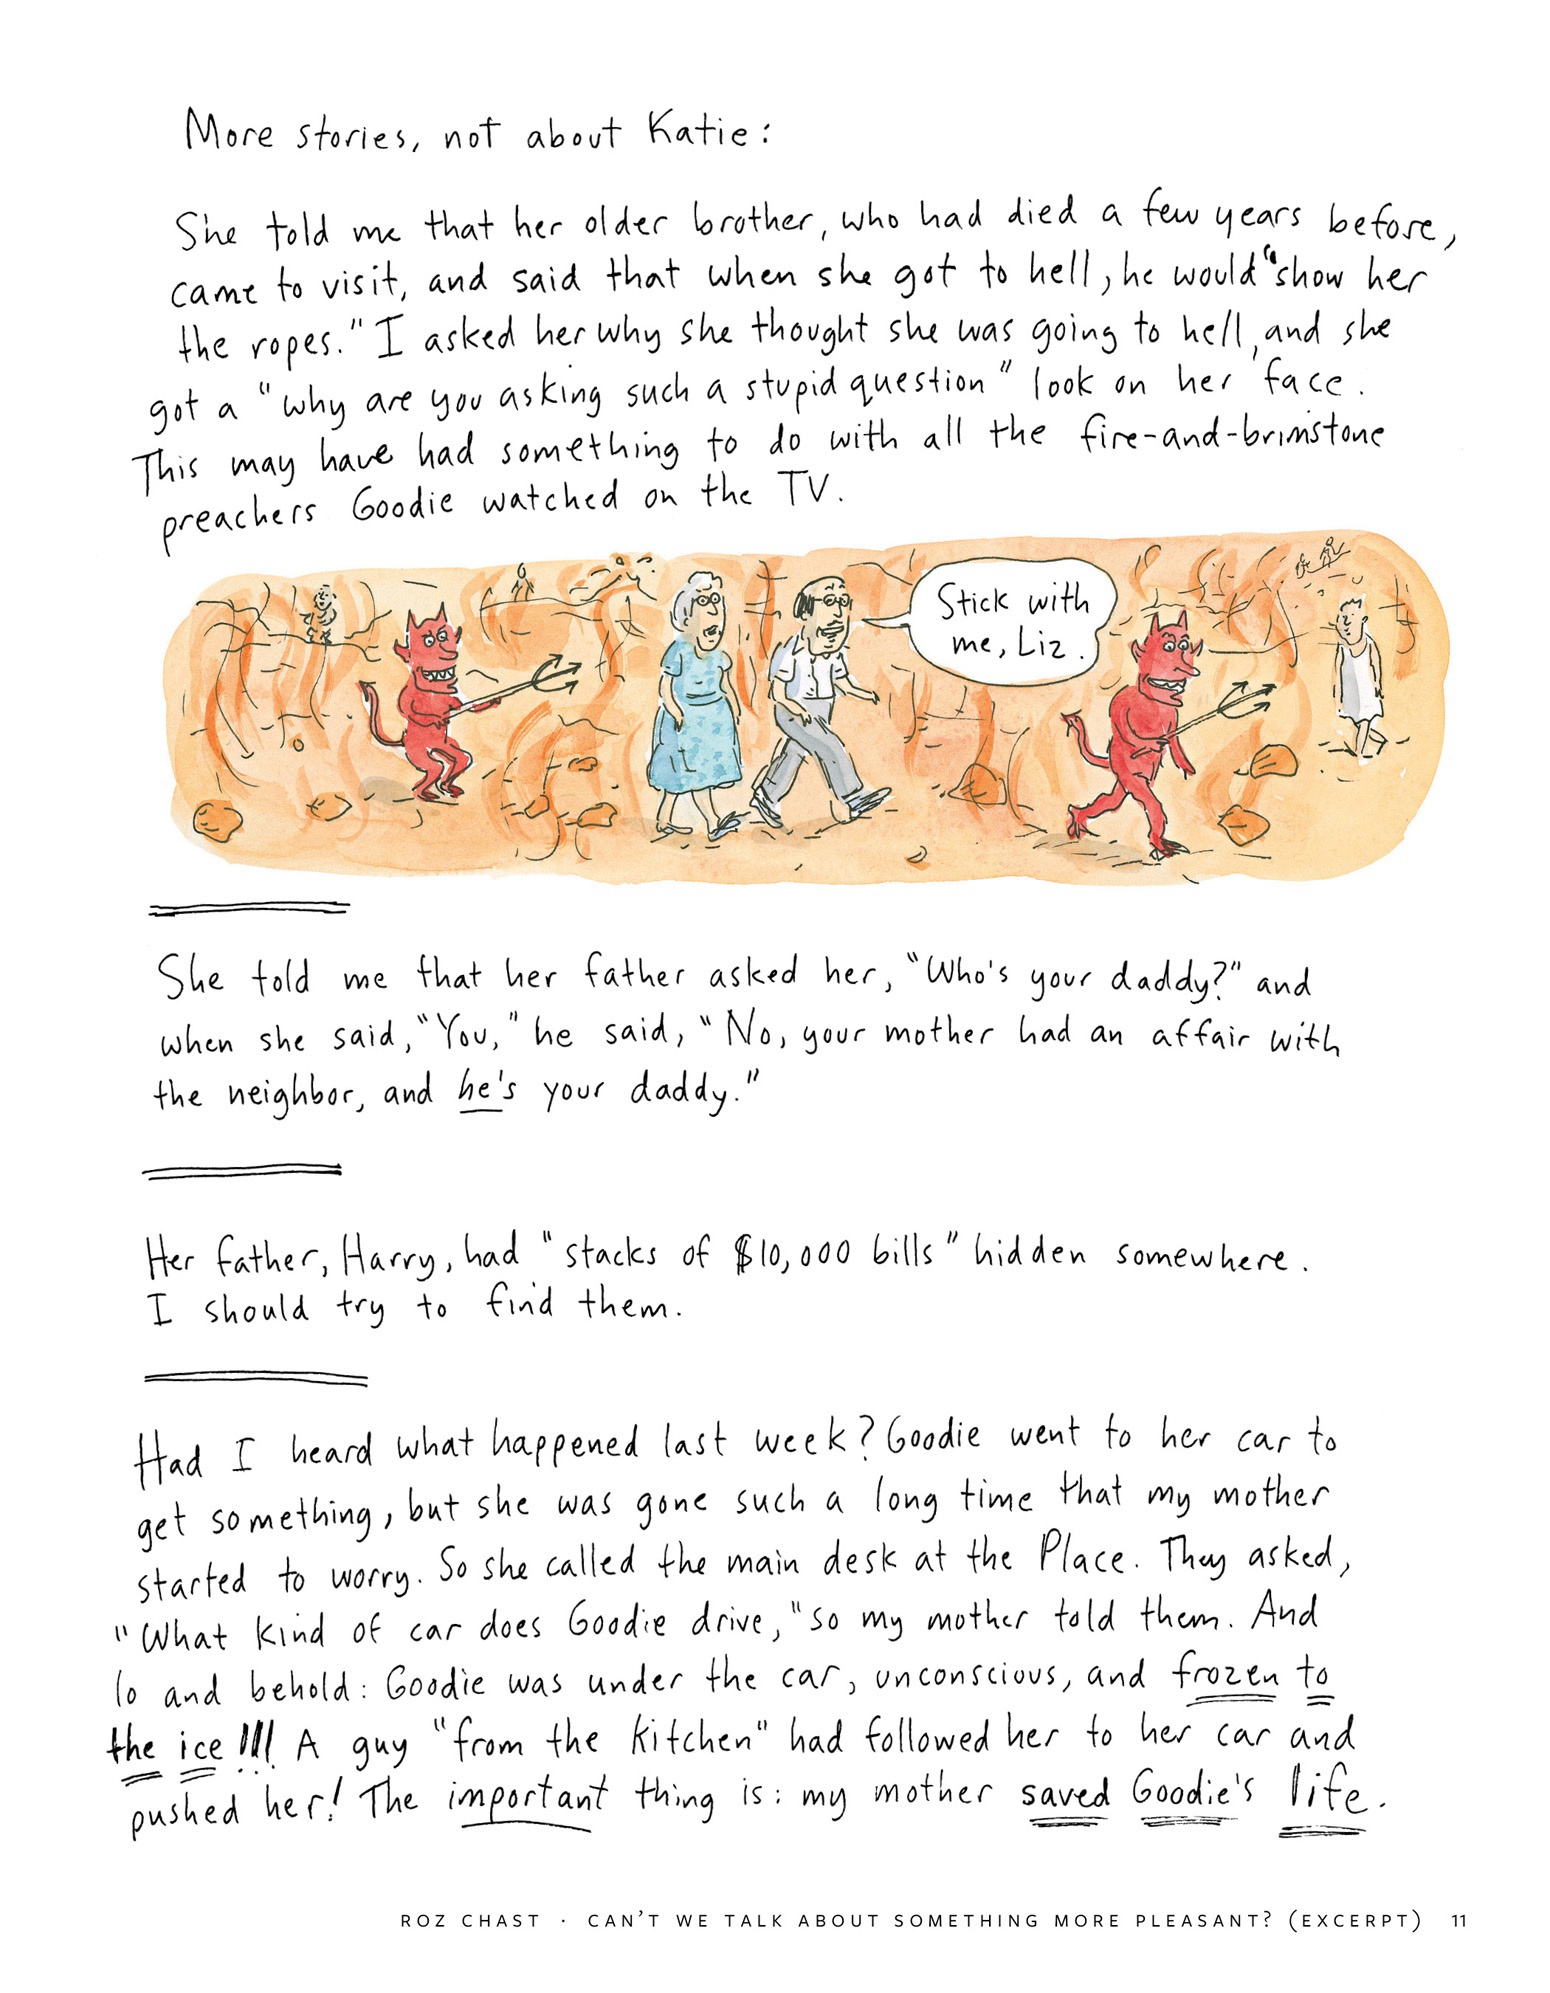 More stories, not about Katie:
She told me that her older brother, who had died a few years before,
came to visit, and said that when she got to hell, he would "show her
the ropes." I asked her why she thought she was going to hell, and she
got a "why are you asking such a stupid question" look on her face.
This may have had something to do with all the fire-and-brimstone
preachers Goodie watched on the TV.
Stick with
me, Liz.
She told me that her father asked her, "Who's your daddy?" and
when she said, "You," he said, "No, your mother had an affair with
the neighbor, and he's your daddy."
Her father, Harry, had "stacks of $10,000 bills" hidden somewhere.
I should try to find them.
Had I heard what happened last week? Goodie went to her car to
get something, but she was gone such a long time that my mother
started to worry. So she called the main desk at the Place. They asked,
"What kind of car does Goodie drive," so my mother told them. And
lo and behold: Goodie was under the car, unconscious, and frozen to
the ice!!! A guy "from the kitchen" had followed her to her car and
pushed her! The important thing is: my mother saved Goodie's life.
ROZ CHAST · CAN'T WE TALK ABOUT SOMETHING MORE PLEASANT? (EXCERPT) 11